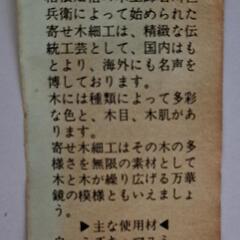 兵衛によって始められた
寄せ木細工は、精緻な伝
統工芸として、国内はも
とより、海外にも名声を
博しております。
木には種類によって多彩
な色と、木目、木肌があり
ます。
寄せ木細工はその木の多
様さを無限の素材として
木と木が繰り広げる万華
鏡の模様ともいえましょ
う。
▶主な使用材▶